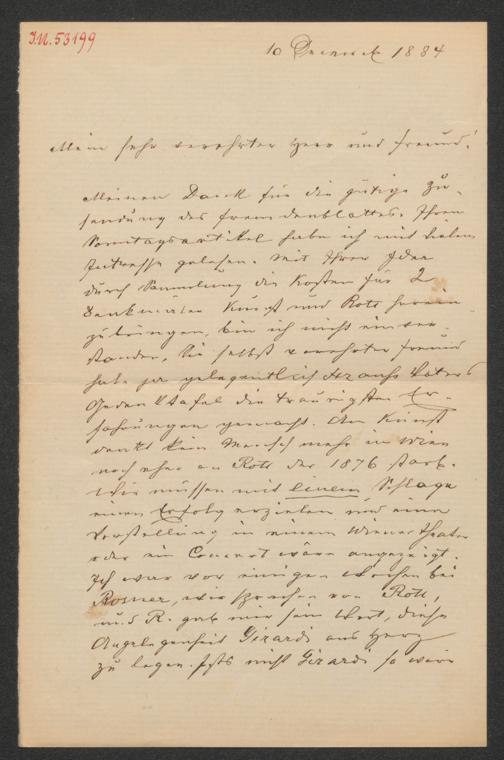 I.N. 53199
10 December 1884
Mein sehr verehrter Herr und Freund!
Meinen Dank für die gütige Zu-
sendung des Fremdenblattes. Ihren
Sonntagsartikel habe ich mit vielem
Interesse gelesen. Mit Ihrer Idee
durch Sammlung die Kosten für 2
Denkmäler Kunst und Rott herein
zubringen, bin ich nicht einver-
standen, Sie selbst verehrter Freund
haben ja gelegentlich Strauss Vaters
Gedenktafel die traurigsten Er-
fahrungen gemacht. An Kunst
denkt kein Mensch mehr in Wien
noch eher an Rott der 1876 starb.
Wir müssen mit einem Schlage
einen Erfolg erzielen und eine
Vorstellung in einem Wiener Theater
oder ein Concert wäre angezeigt.
Ich war vor einigen Wochen bei
Rosner, wir sprachen von Rott,
und R. gab mir sein Wort, diese
Angelegenheit Girardi ans Herz
zu legen. Ists nicht Girardi so wäre